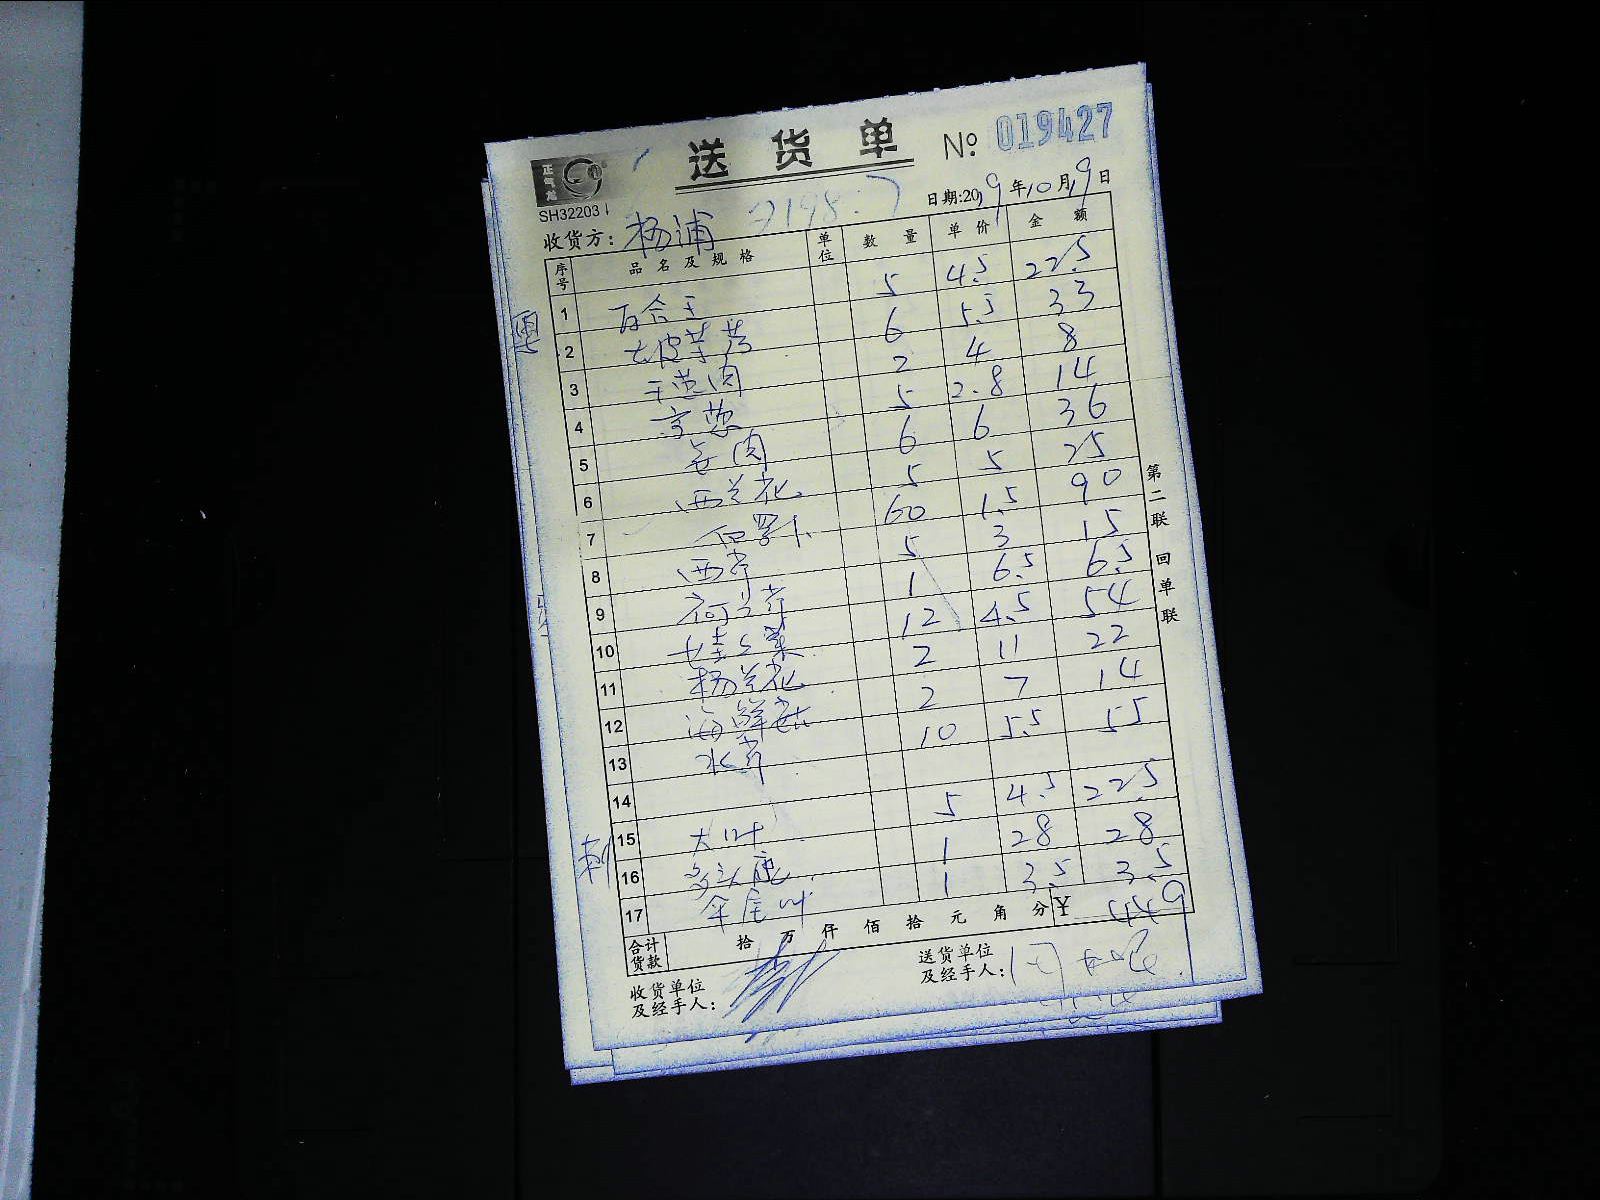 正气龙
SH32203
送货单
No. 019427
日期:2019年10月19日
收货方: 杨浦 7198.7
序号 品名及规格 单位 数量 单价 金额
1 百合王 5 4.5 22.5
2 大皮芋艿 6 5.5 33
3 干葱肉 2 4 8
4 京葱 5 2.8 14
5 姜肉 6 6 36
6 西兰花 5 5 25
7 白罗卜 60 1.5 90
8 西芹 5 3 15
9 荷兰芹 1 6.5 6.5
10 娃娃菜 12 4.5 54
11 杨兰花 2 11 22
12 海鲜菇 2 7 14
13 水芹 10 5.5 55
14
15 大叶 5 4.5 22.5
16 1 28 28
17 1 3.5 3.5
合计货款 拾 万 仟 佰 拾 元 角 分 ¥ 449
收货单位及经手人:
送货单位及经手人:
第二联 回单联